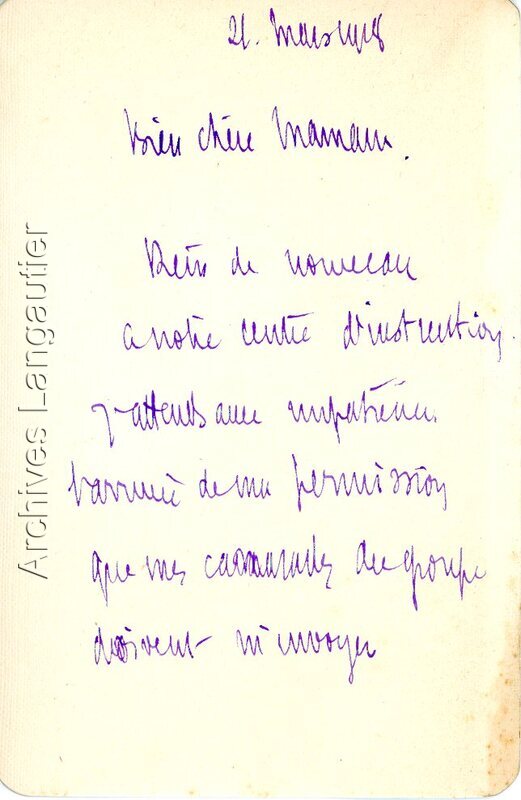 21. Mars 1918
Bien chère Maman.
de nouveau
a notre centre d'instruction
j'attends avec impatience
l'arrivée de ma permission
que mes camarades du groupe
doivent m'envoyer
Archives Langautier